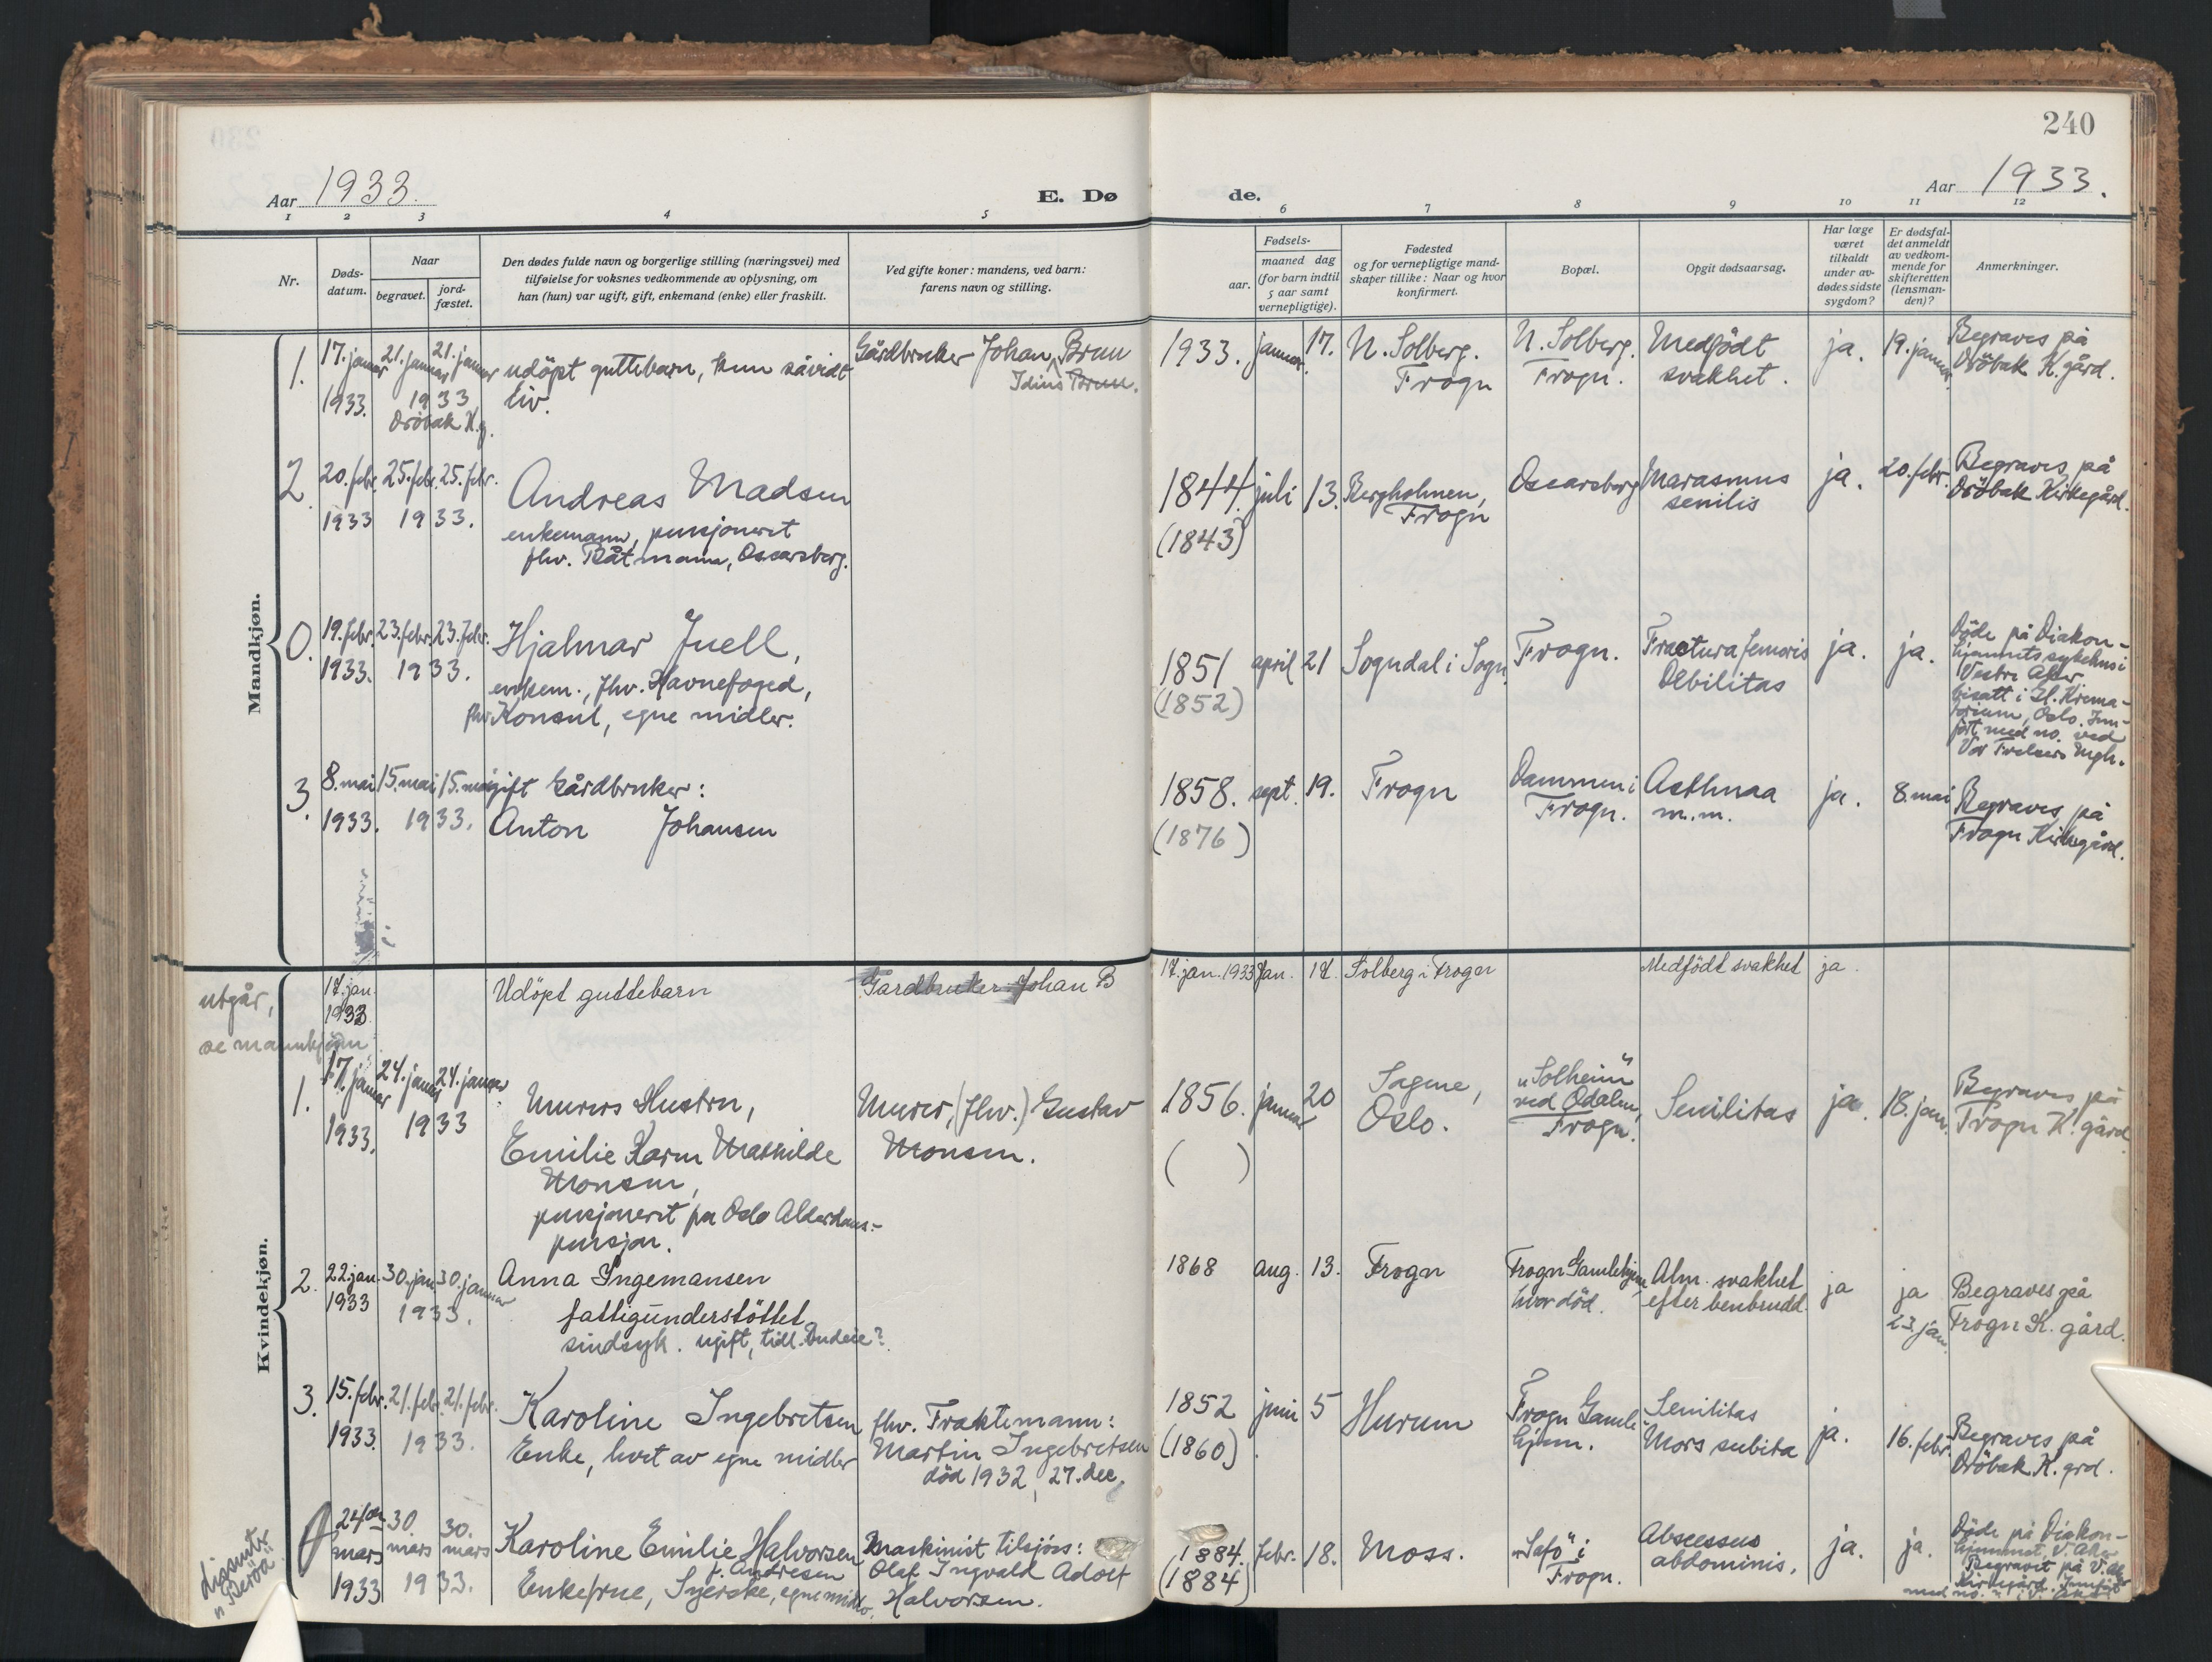 240
Aar 1933.
E. Døde.
Aar 1933.
1 2 3 4 5 6 7 8 9 10 11 12
Nr.
Døds-
datum.
Naar
begravet.
jord-
fæstet.
Den dødes fulde navn og borgerlige stilling (næringsvei) med
tilføielse for voksnes vedkommende av oplysning, om
han (hun) var ugift, gift, enkemand (enke) eller fraskilt.
Ved gifte koner: mandens, ved barn:
farens navn og stilling.
Fødsels-
aar.
maaned dag
(for barn indtil
5 aar samt
vernepligtige).
Fødested
og for vernepligtige mand-
skaper tillike: Naar og hvor
konfirmert.
Bopæl.
Opgit dødsaarsag.
Har læge
været
tilkaldt
under av-
dødes sidste
sygdom?
Er dødsfal-
det anmeldt
av vedkom-
mende for
skifteretten
(lensman-
den)?
Anmerkninger.
Mandkjøn.
1. 17. januar 1933. 21. januar 21. januar 1933 Dröbak K.g.
udöpt guttebarn, kun såvidt
liv.
Gårdbruker Johan Brun
Idius Brun.
1933. januar 17. N. Solberg.
Frogn
N. Solberg.
Frogn.
Medfödt
svakhet.
ja. 19. januar
Begraves på
Dröbak K.gård.
2. 20. febr. 1933 25. febr. 25. febr. 1933.
Andreas Madsen
enkemann, pensjonert
fhv. Båtmann, Oscarsborg.
1844. juli 13.
(1843)
Bergholmen,
Frogn
Oscarsborg
Marasmus
senilis
ja. 20. febr.
Begraves på
Dröbak Kirkegård.
0. 19. febr. 1933. 23. febr. 23. febr. 1933.
Hjalmar Juell,
enkem., fhv. Havnefoged,
fhv Konsul, egne midler.
1851 april 21
(1852)
Sogndal i Sogn
Frogn.
Fractura femoris
Debilitas
ja. ja.
Döde på Diakon-
hjemmets sykehus i
Vestre Aker
bisatt i Gl. Krema-
torium, Oslo. Inn-
fört med no. ved
Vor Frelsers mgh.
3. 8. mai 1933. 15. mai 15. mai 1933.
gift Gårdbruker:
Anton Johansen
1858. sept. 19.
(1876)
Frogn
Dammen i
Frogn.
Asthmaa
m.m.
ja. 8. mai
Begraves på
Frogn Kirkegård.
Kvindekjøn.
utgår,
se mannkjön
17. jan. 1933
Udöpt guttebarn
Gardbruker Johan B
17. jan. 1933 Jan. 17. Solberg i Frogn
Medfödt svakhet ja.
1. 17. januar 1933. 24. januar 24. januar 1933
Murers Hustru,
Emilie Karen Mathilde
Monsen,
pensjonert pr Oslo Alderdoms-
pensjon.
Murer, (fhv.) Gustav
Monsen.
1856. januar 20
( )
Sagene,
Oslo.
"Solheim"
ved Odalen,
Frogn.
Senilitas
ja. 18. jan.
Begraves på
Frogn K. gård
2. 22. jan. 1933 30. jan 30. januar 1933.
Anna Ingemansen
fattigunderstöttet
sindsyk. ugift, tidl. Budeie?
1868 aug. 13. Frogn
Frogn Gamlehjem
hvor död.
Alm. svakhet
efter benbrudd.
ja
ja
23. jan.
Begraves på
Frogn K. gård.
3. 15. febr. 1933. 21. febr. 21. febr. 1933.
Karoline Ingebretsen
Enke, levet av egne midler
fhv. Fraktemann:
Martin Ingebretsen
död 1932, 27. dec.
1852 juni 5
(1860).
Hurum
Frogn Gamle
hjem.
Senilitas
Mors subita
ja. 16. febr.
Begraves på
Dröbak K. grd.
0 24de mars 1933 30. mars 30. mars 1933.
Karoline Emilie Halvorsen
f. Andresen
Enkefrue, Syerske, egne midler.
Maskinist tilsjös:
Olaf Ingvald Adolf
Halvorsen.
1884. febr. 18.
(1884)
Moss.
"Safo" i
Frogn.
Abscessus
abdominis.
ja. ja.
Döde på Diakon-
hjemmet, V. Aker
Begravet på V. Ak.
Kirkegård. Innfört
med no. i V. Aker.